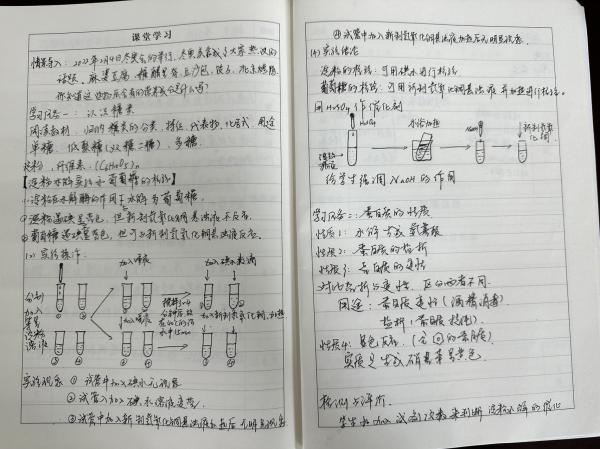 课堂学习
情景导入：2022年2月4日冬奥会的举行，冬奥美食成了大家热议的
话题，麻婆豆腐、豆沙包、饺子、北京烤鸭
你知道这些物质含有的营养成分是什么吗？
学习任务一：认识糖类
阅读教材，归纳糖类的分类、特征、代表物、化学式、用途
单糖、低聚糖（双糖二糖）、多糖
淀粉、纤维素：(C6H10O5)n
【淀粉水解实验和葡萄糖的检验】
淀粉在水解酶的作用下水解为葡萄糖
①淀粉遇碘呈蓝色，但新制氢氧化铜悬浊液不反应。
②葡萄糖遇碘呈色，但可与新制氢氧化铜悬浊液反应。
(2) 实验操作：
加入唾液
加入碘水溶液
分别
加入
等量
淀粉
溶液
① ②
加入唾液
搅拌3~4
分钟后放
水中15min
加入新制氢氧化铜，加热
③ ④
实验现象 ① 试管中加入碘水无现象
② 试管入加入碘水溶液变蓝
③ 试管中加入新制氢氧化铜悬浊液加热后无明显现象
④ 试管中加入新制氢氧化铜悬浊液加热后无明显现象.
(4) 实验结论
淀粉的检验：可用碘水进行检验
葡萄糖的检验：可用新制氢氧化铜悬浊液并加热进行检验。
用H2SO4作催化剂
H2SO4
水浴加热
NaOH
新制氢氧
化铜
淀粉
溶液
给学生强调 NaOH的作用
学习任务二：蛋白质的性质
性质1：水解生成氨基酸
性质2：蛋白质的盐析
性质3：蛋白质的变性
对比盐析与变性，区分两者不同.
用途：蛋白质变性（酒精消毒）
盐析（蛋白质提纯）
性质4：显色反应.（含的蛋白质）
实质是生成硝基苯显黄色.
检测与评价.
学生加加入试剂次数来判断淀粉水解的催化